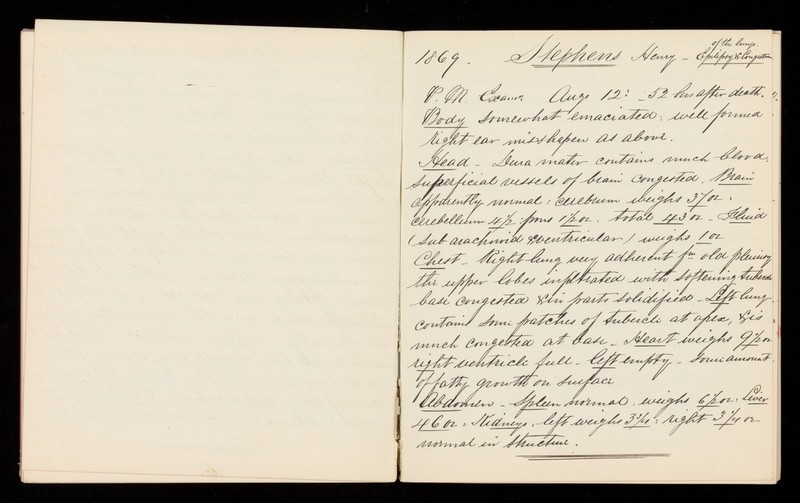 1869. Stephens Henry - Epilepsy & Congestion
of the lungs.
P. M. Examn. Augt 12: - 52 hrs after death.
Body somewhat emaciated: well formed
right ear misshapen as above.
Head - Dura mater contains much blood.
superficial vessels of brain congested. Brain
apparently normal: cerebrum weighs 37 oz:
cerebellum 4½: pons 1½ oz. total 43 oz - Fluid
(sub arachnoid & ventricular) weighs 1 oz
Chest - Right lung very adherent fm old pleurisy
the upper lobes infiltrated with softening tubercle
base congested & in parts solidified - Left lung
contains some patches of tubercle at apex, & is
much congested at base - Heart weighs 9½ oz
right ventricle full - left empty - Some amount
of fatty growth on surface
Abdomen - Spleen normal, weighs 6½ oz: Liver
46 oz: Kidneys, left weighs 3¾: right 3¼ oz
normal in structure.